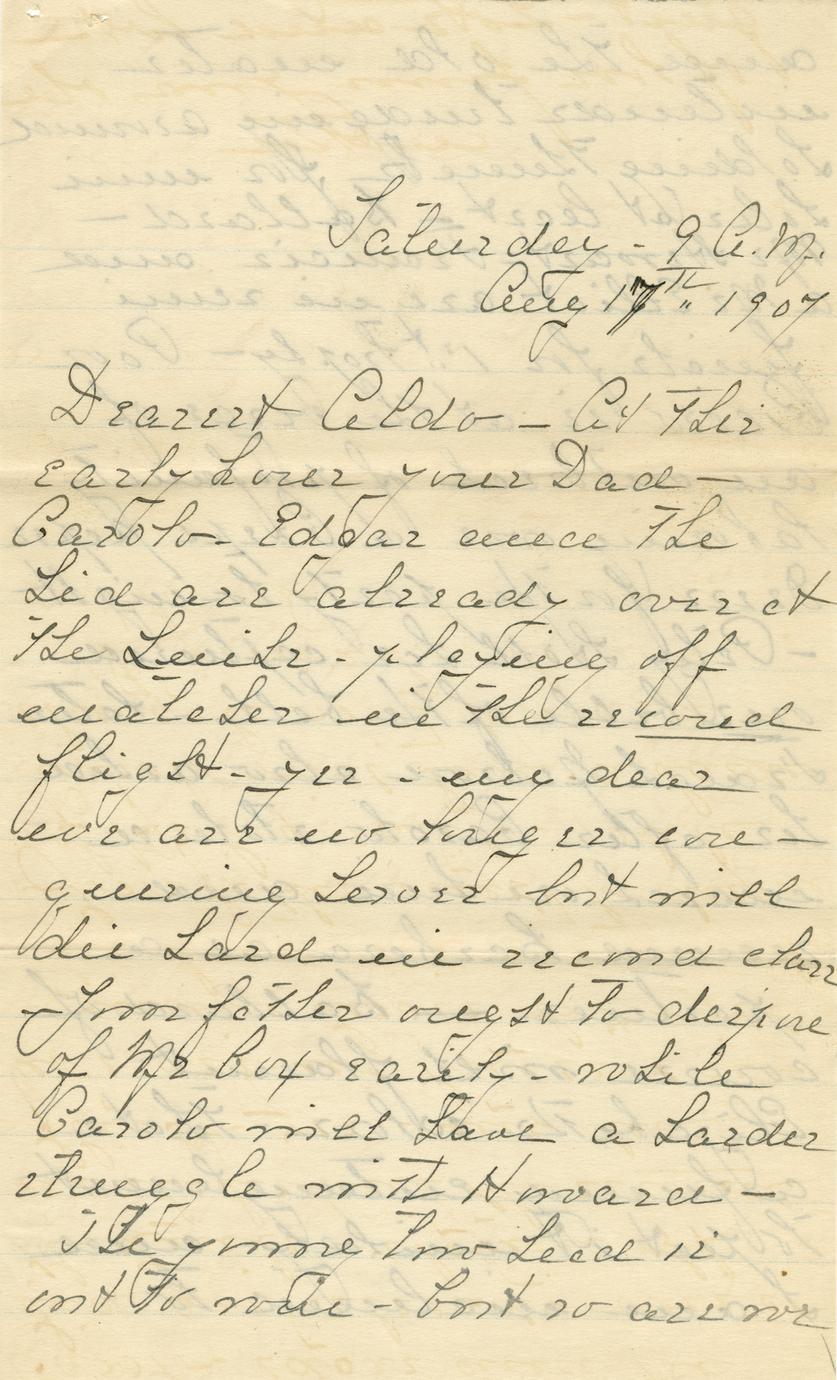 Saturday - 9 A.M.
Aug 17th 1907
Dearest Aldo - At this
early hour your Dad -
Carolo - Edgar and the
Kid are already over at
the Links - playing off
matches in the second
flight - yes - my dear
we are no longer con-
quering heroes but will
die hard in second class
- Your father ought to dispose
of Mr Box easily - while
Carolo will have a harder
struggle with Howard -
The young tow head is
out to win - but so are we